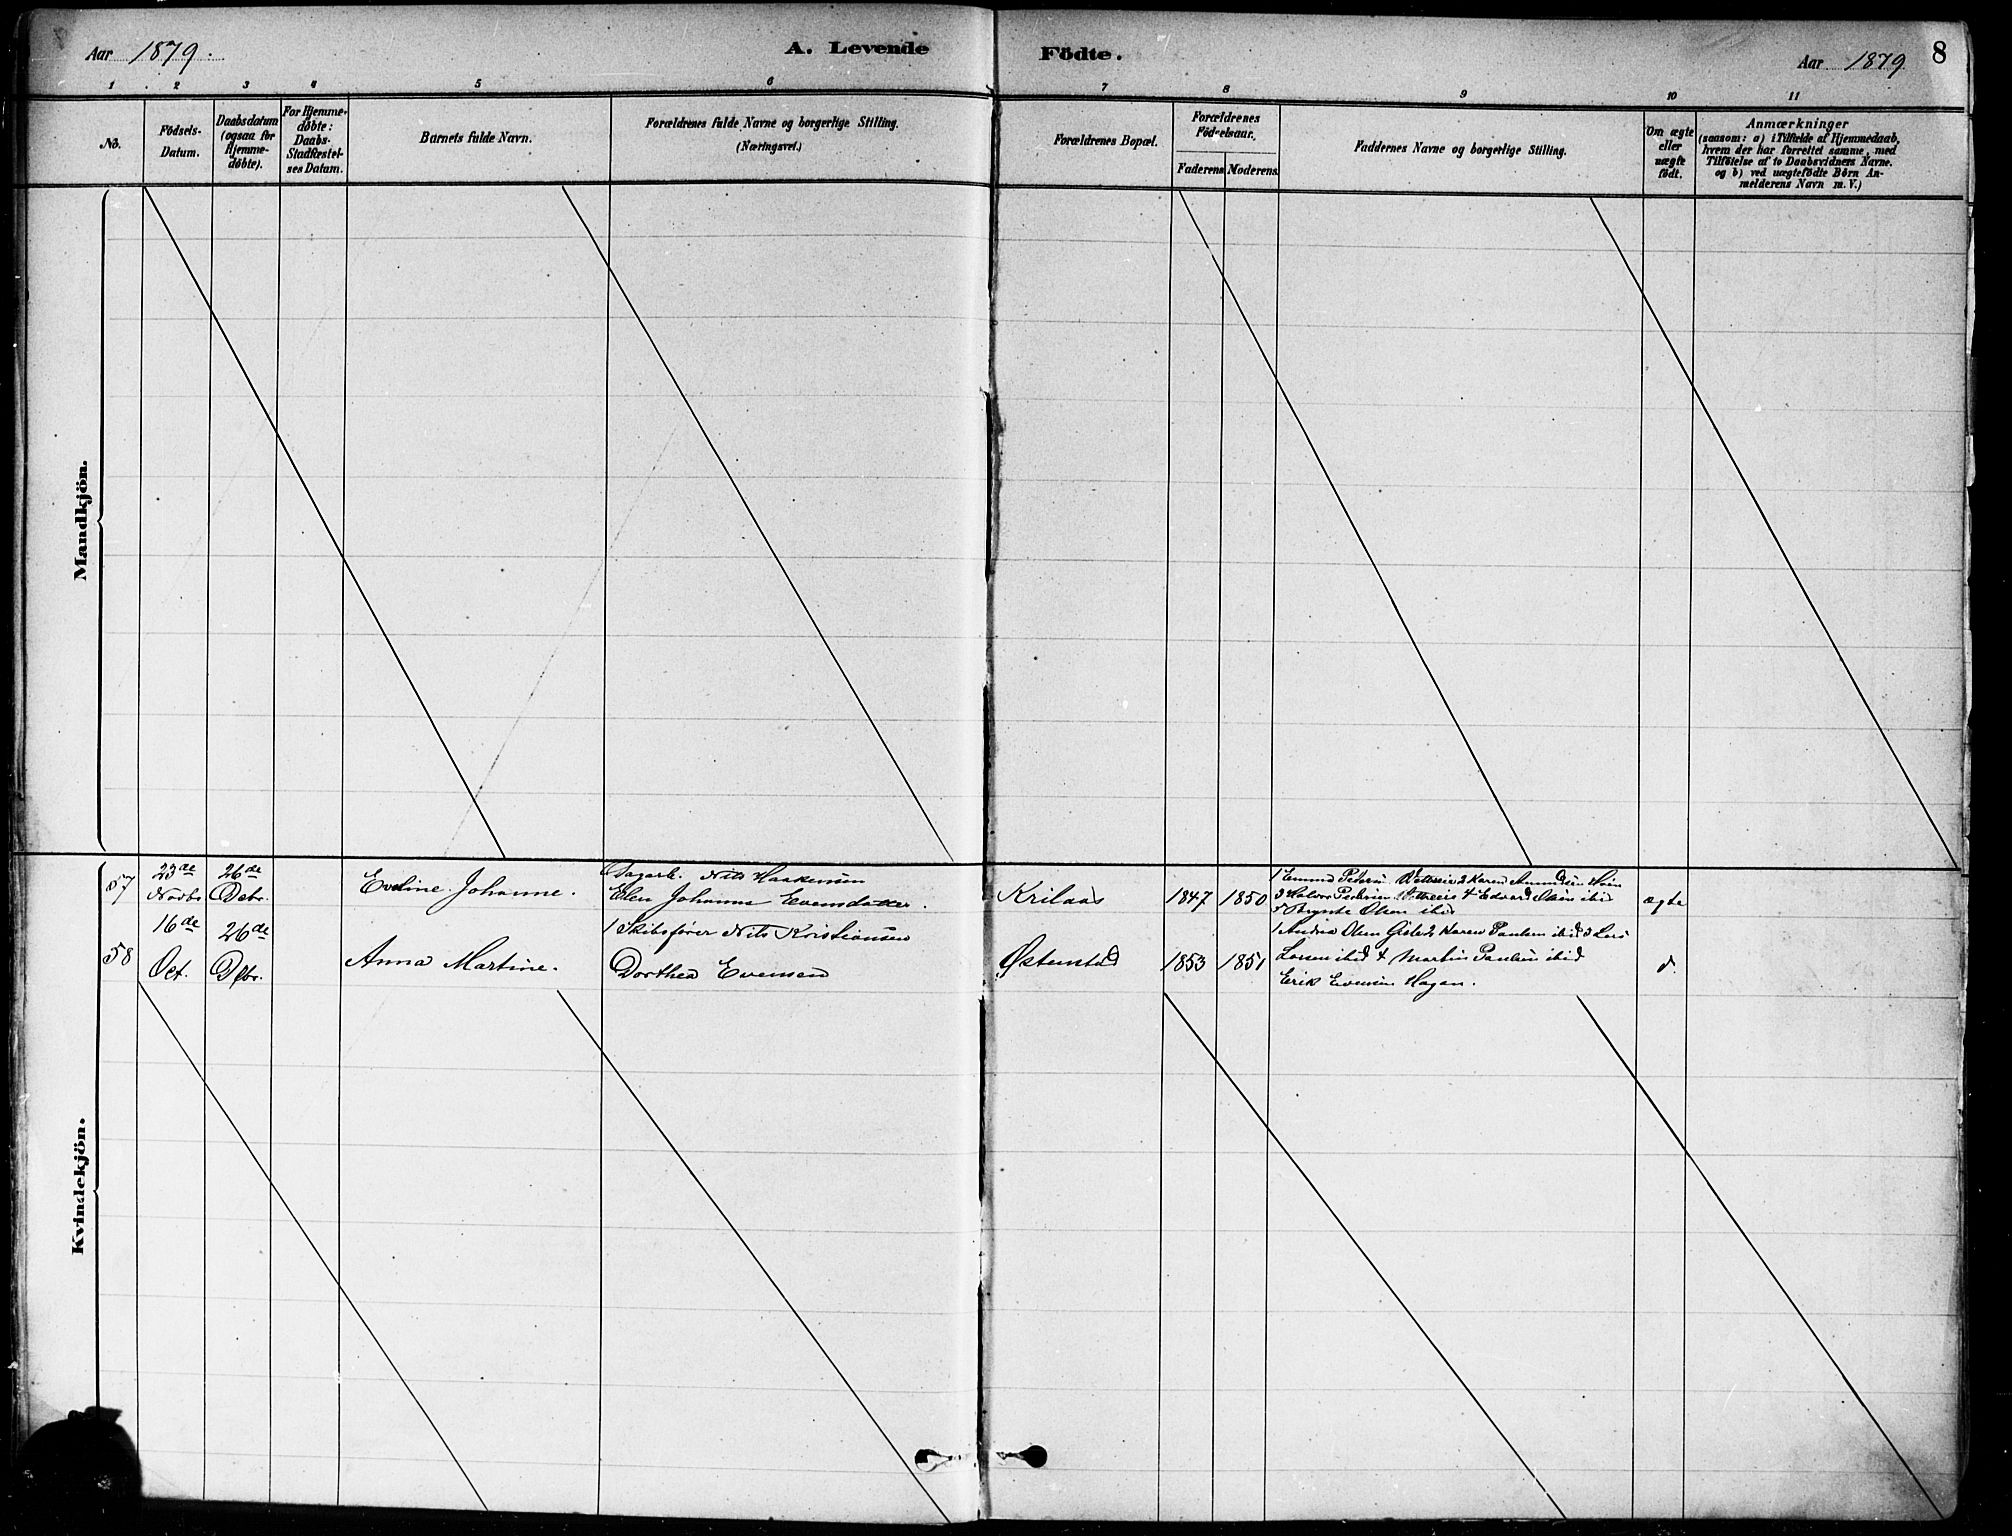 Aar 1879.
A. Levende
Födte.
Aar 1879
8
1 2 3 4 5 6 7 8 9 10 11
No.
Födsels-Datum.
Daabsdatum (ogsaa for Hjemme-döbte).
For Hjemme-döbte: Daabs-Stadfæstel-ses Datum.
Barnets fulde Navn.
Forældrenes fulde Navne og borgerlige Stilling.
(Næringsvei.)
Forældrenes Bopæl.
Forældrenes Föd-elsaar.
Faderens Moderens.
Faddernes Navne og borgerlige Stilling.
Om ægte eller uægte födt.
Anmærkninger
(saasom: a) i Tilfælde af Hjemmedaab,
hvem der har forrettet samme, med
Tilföielse af to Daabsvidners Navne.
og b) ved uægtefödte Börn An-
melderens Navn m. V.)
Mandkjön.
Kvindekjön.
57 23de Novbr 26de Debr. Eveline Johanne. Nils Haakensen
Elen Johanne Evensdatter. Krilaas 1847 1850 ægte
Edvard Olsen ibid
Olsen ibid
58 16de Oct. 26de Dbr. Anna Martine. Skibsfører Nils Kristiansen
Dorthea Evensen Østenstad 1853 1851 d.
Karen Paulsen ibid 3 Lars
Larsen ibid 4 Martin Paulsen ibid
Erik Evensen Hagan.